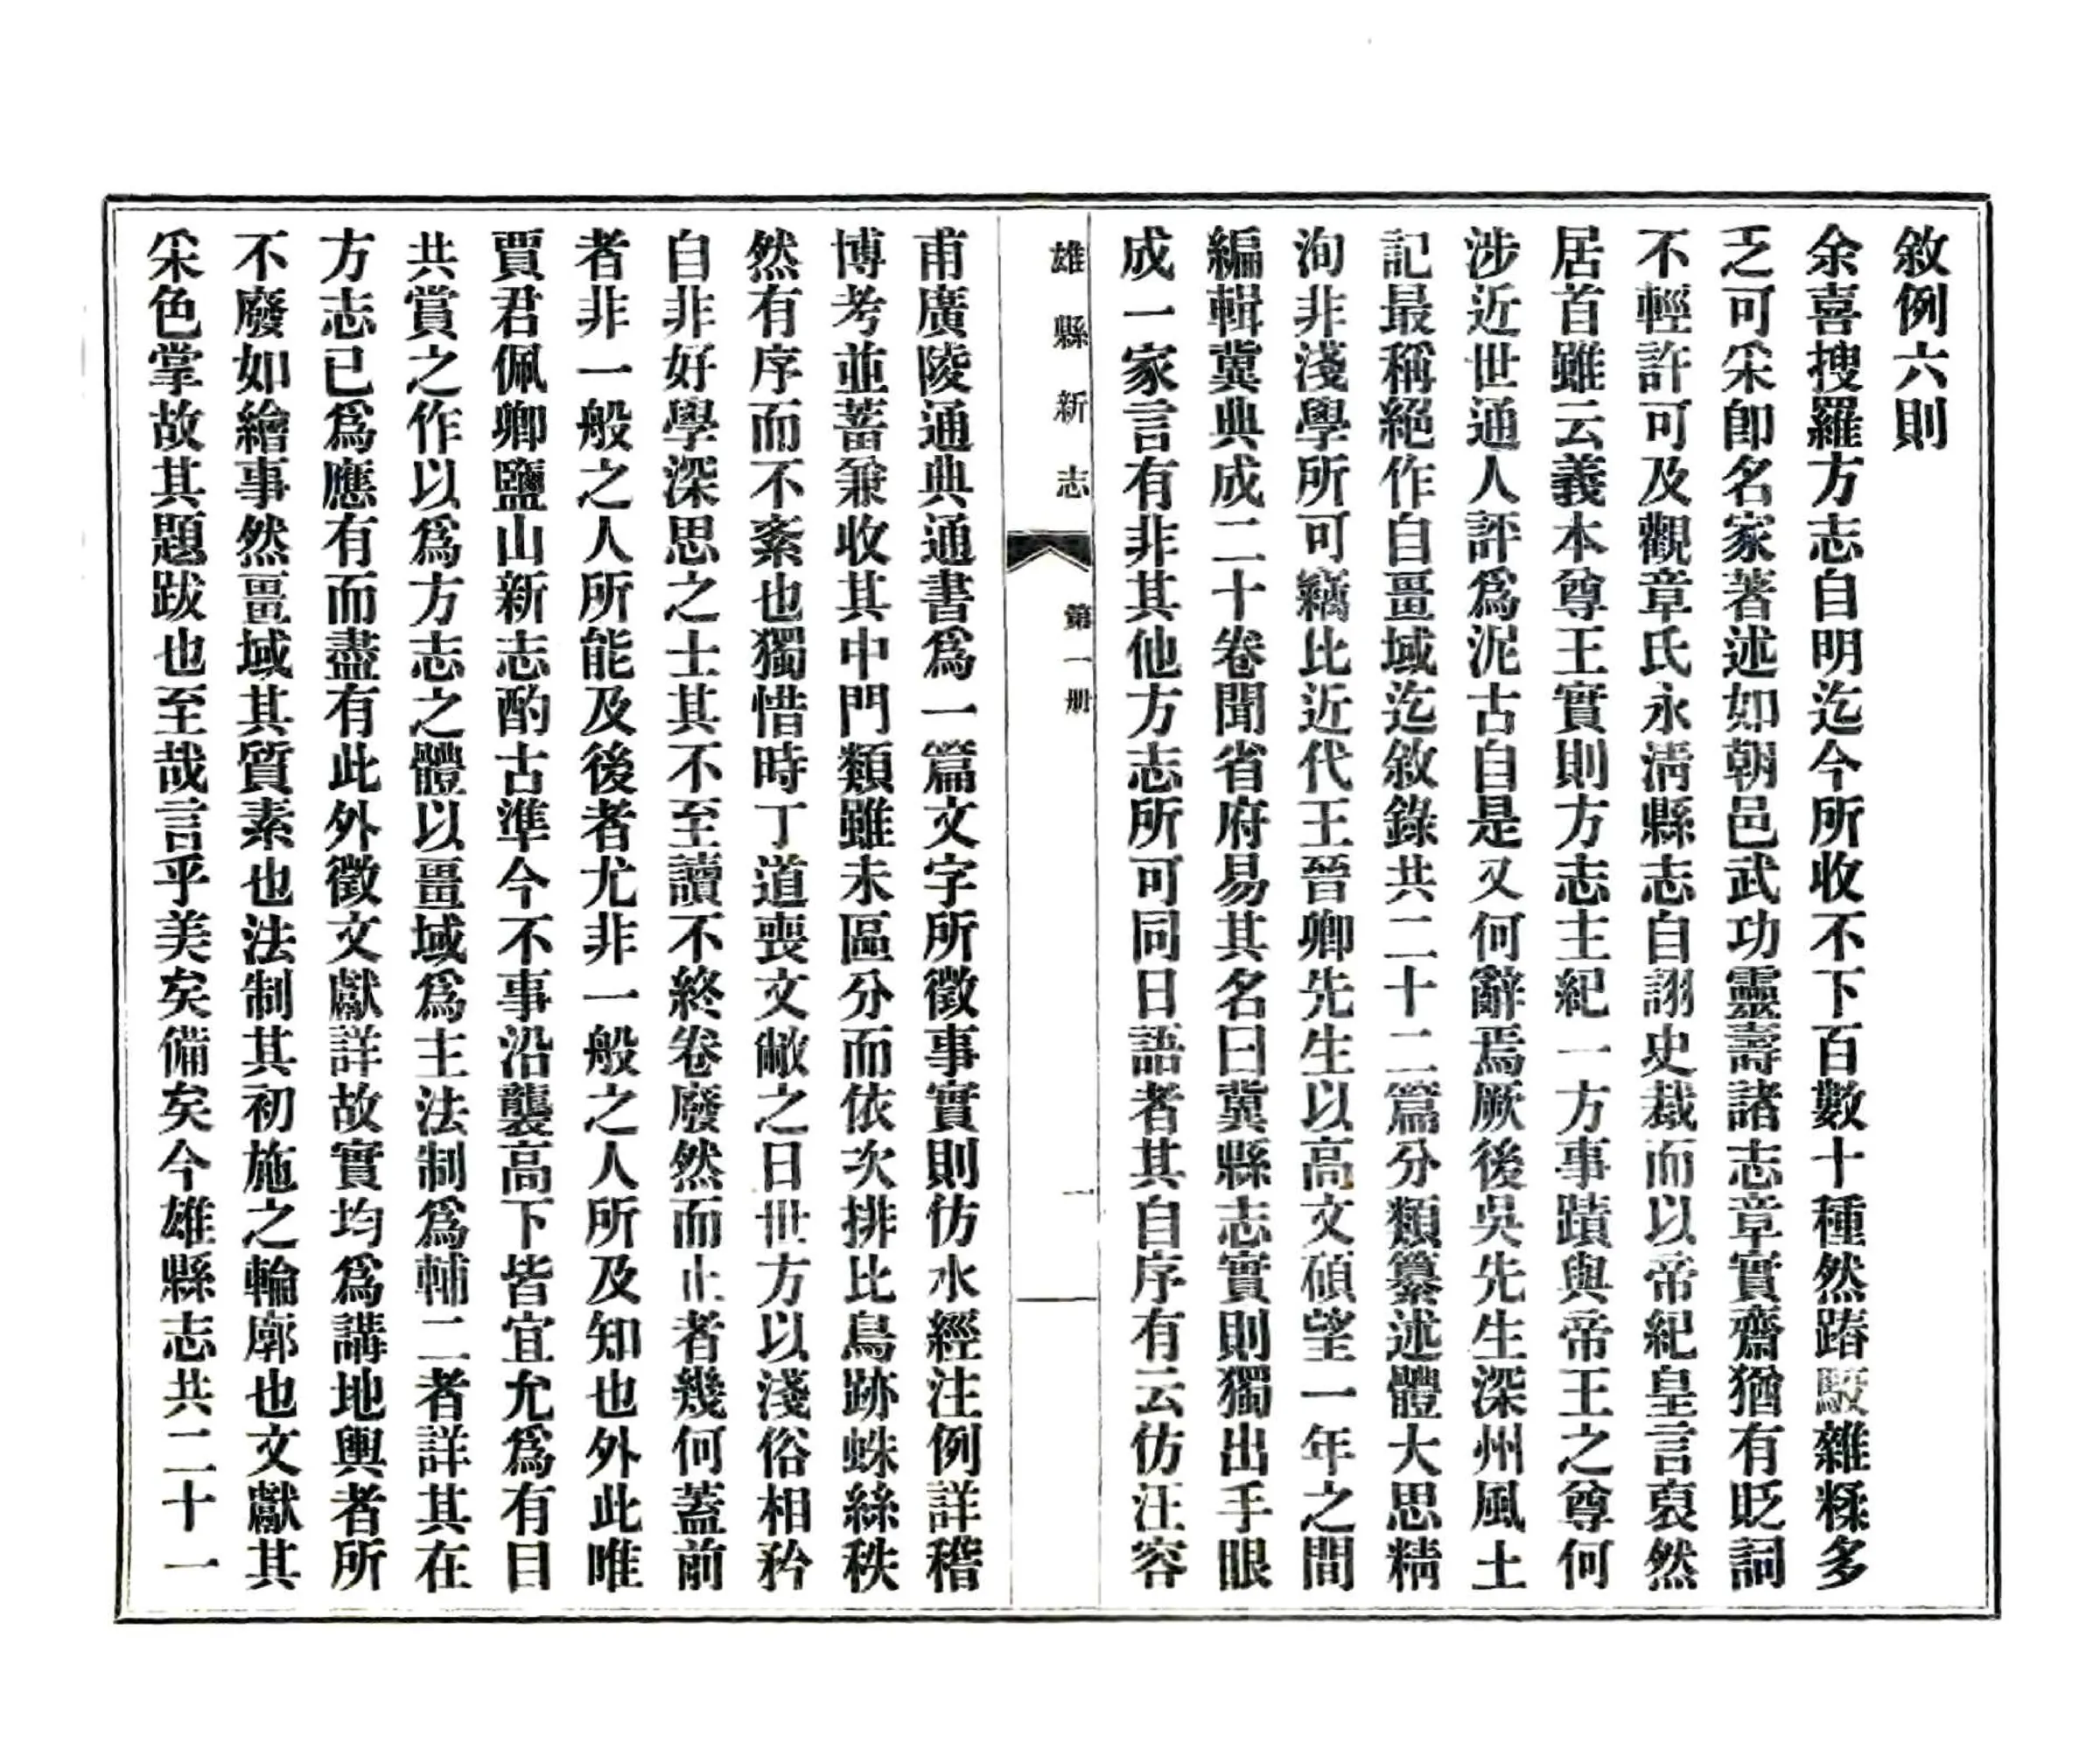 敘例六則
余喜搜羅方志自明迄今所收不下百數十種然踳駁雜糅多
乏可采即名家著述如朝邑武功靈壽諸志章實齋猶有貶詞
不輕許可及觀章氏永清縣志自詡史裁而以帝紀皇言裒然
居首雖云義本尊王實則方志主紀一方事蹟與帝王之尊何
涉近世通人評爲泥古自是又何辭焉厥後吳先生深州風土
記最稱絕作自畺域迄敘錄共二十二篇分類纂述體大思精
洵非淺學所可竊比近代王晉卿先生以高文碩望一年之間
編輯冀典成二十卷聞省府易其名曰冀縣志實則獨出手眼
成一家言有非其他方志所可同日語者其自序有云仿汪容
雄縣新志 第一册 一
甫廣陵通典通書爲一篇文字所徵事實則仿水經注例詳稽
博考並蓄兼收其中門類雖未區分而依次排比鳥跡蛛絲秩
然有序而不紊也獨惜時丁道喪文敝之日世方以淺俗相矜
自非好學深思之士其不至讀不終卷廢然而止者幾何蓋前
者非一般之人所能及後者尤非一般之人所及知也外此唯
賈君佩卿鹽山新志酌古準今不事沿襲高下皆宜允爲有目
共賞之作以爲方志之體以畺域爲主法制爲輔二者詳其在
方志已爲應有而盡有此外徵文獻詳故實均爲講地輿者所
不廢如繪事然畺域其質素也法制其初施之輪廓也文獻其
采色掌故其題跋也至哉言乎美矣備矣今雄縣志共二十一